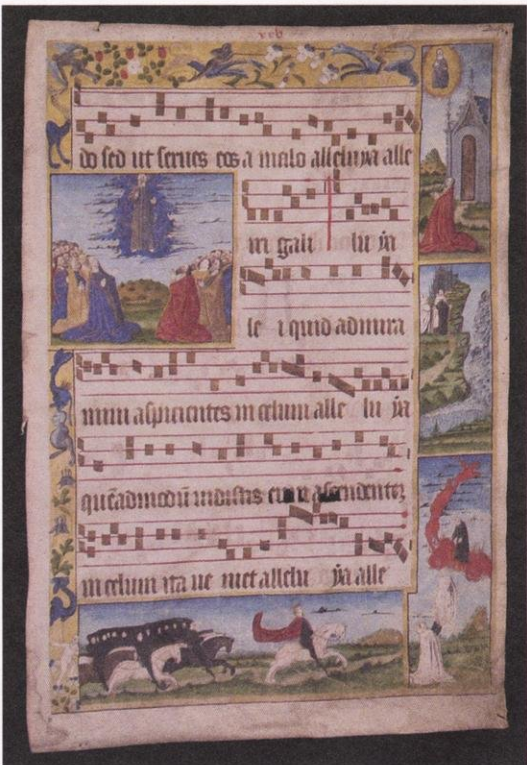 do sed ut serues eos a malo alleluya alle
in gali lu ya
le i quid admira
mini aspicientes in celum alle lu ya
quēadmodū uidistis eum ascendentez
in celum ita ue niet allelu ya alle